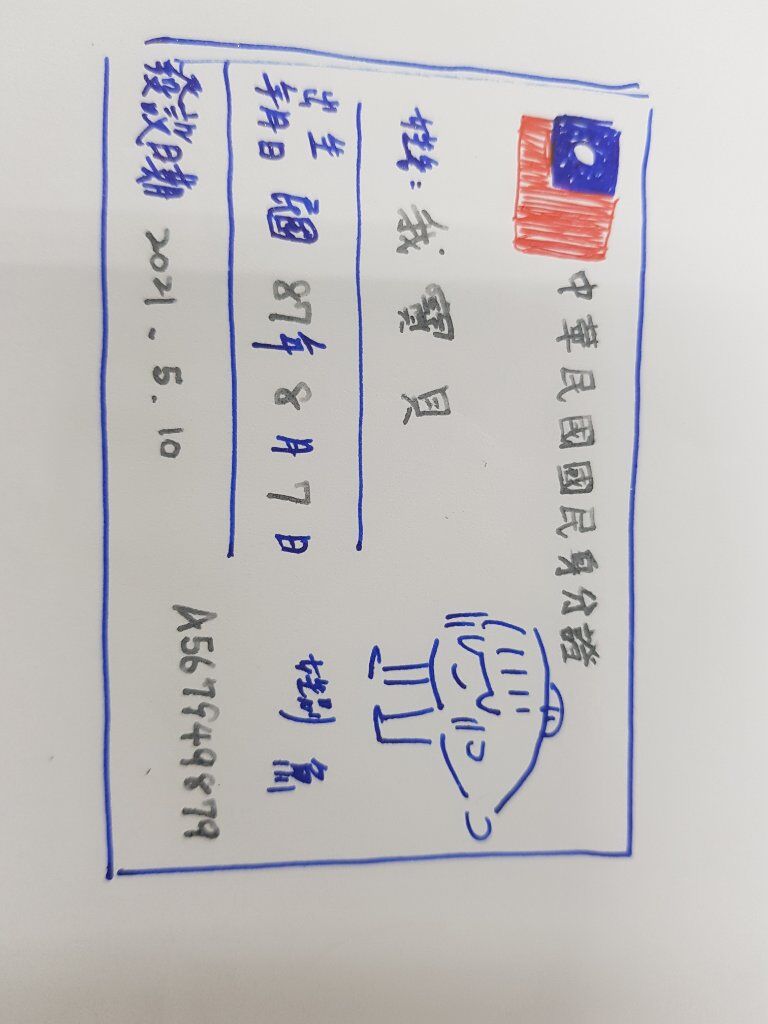 中華民國國民身分證
姓名: 我寶貝
出生年月日 民國 87年 8月 7日
性別
發證日期 2021.5.10